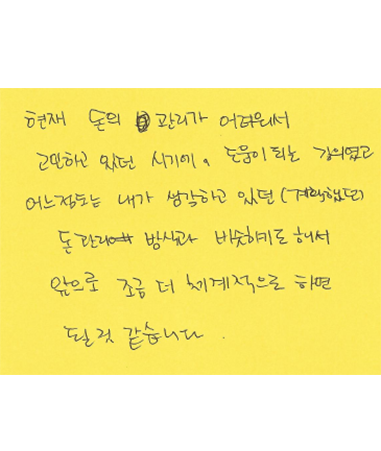 현재 돈의 관리가 어려워서
고민하고 있던 시기에, 도움이 되는 강의였고
어느정도는 내가 생각하고 있던 (계획했던)
돈 관리 방식과 비슷하기도 해서
앞으로 조금 더 체계적으로 하면
될 것 같습니다.